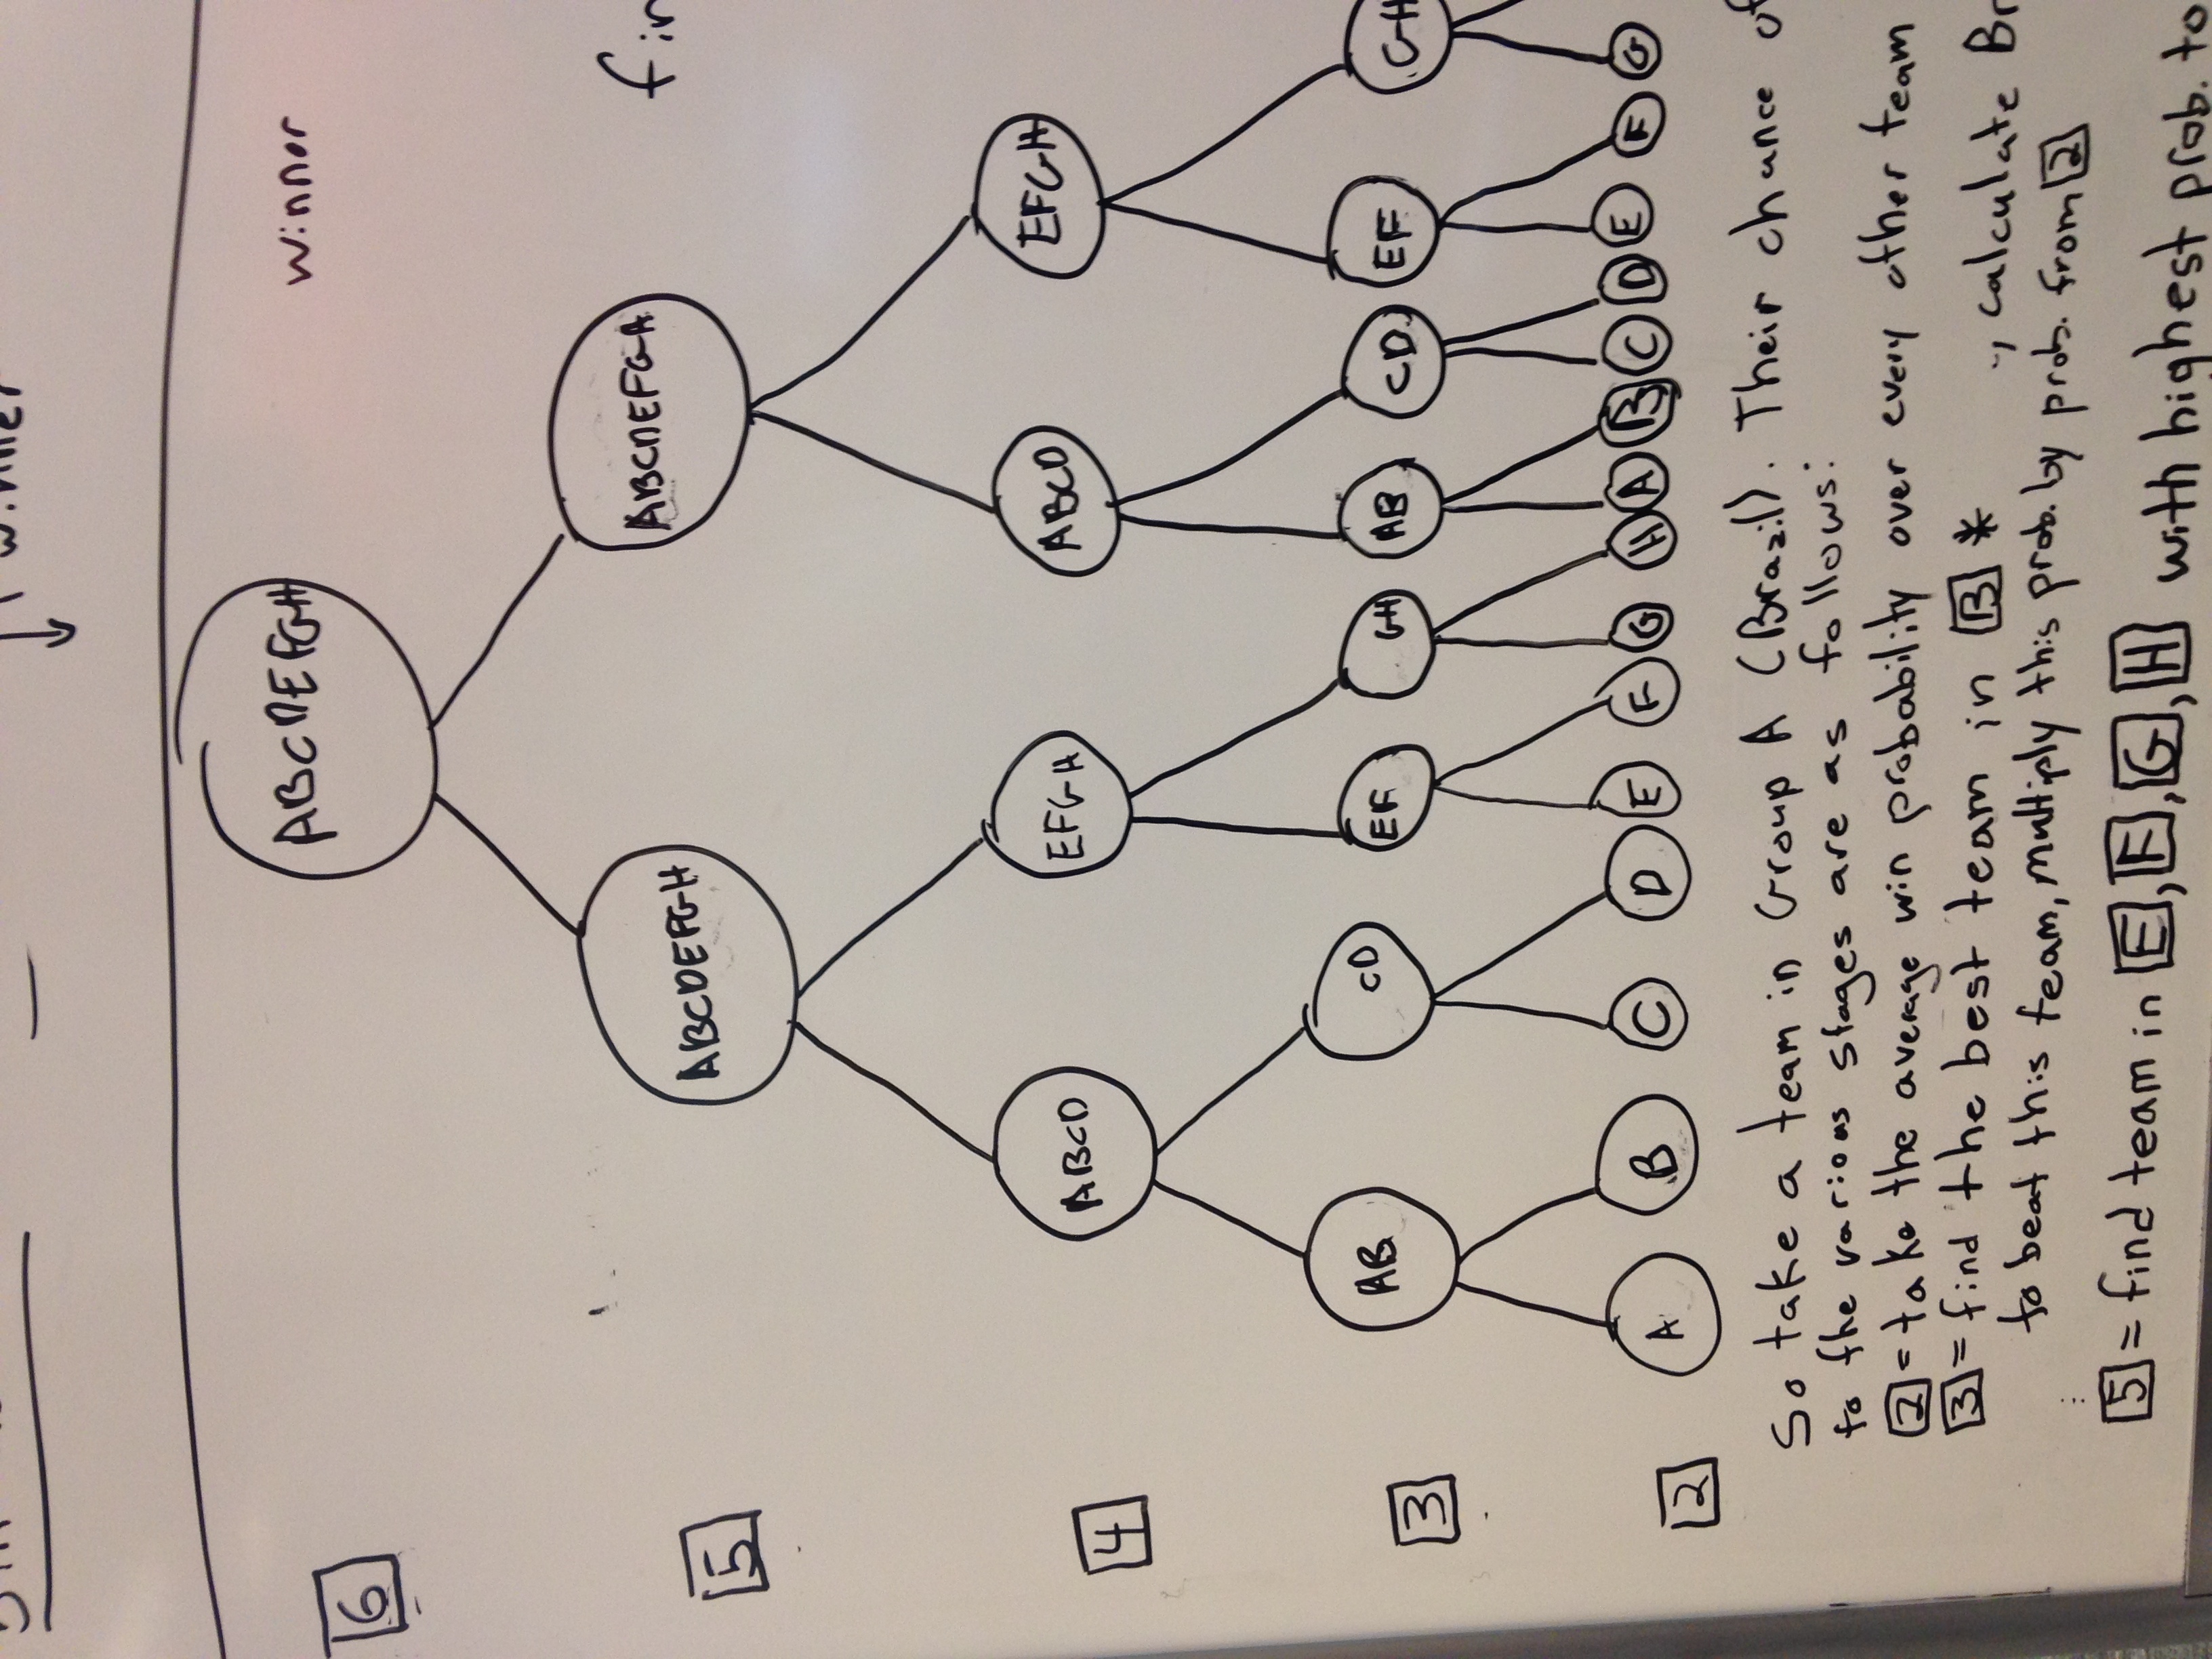 winner
ABCDEFGH
winner
6
ABCDEFGH
ABCDEFGH
5
ABCD
EFGH
ABCD
EFGH
4
AB
CD
EF
GH
AB
CD
EF
GH
3
A
B
C
D
E
F
G
H
A
B
C
D
E
F
G
2
So take a team in Group A (Brazil). Their chance of
to the various stages are as follows:
2 = take the average win probability over every other team
3 = find the best team in B * , calculate Br
to beat this team, multiply this prob. by prob. from 2
⋮
5 = find team in E, F, G, H with highest prob. to